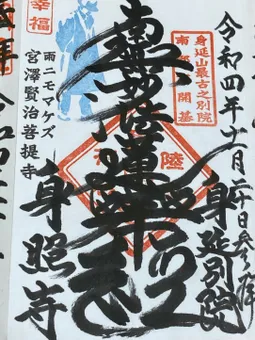 令和四年十一月二十日参拝
身延別院
身延山最古之別院
南部 開基
南無妙法蓮華経
陸
雨ニモマケズ
宮澤賢治菩提寺
身照寺
幸福